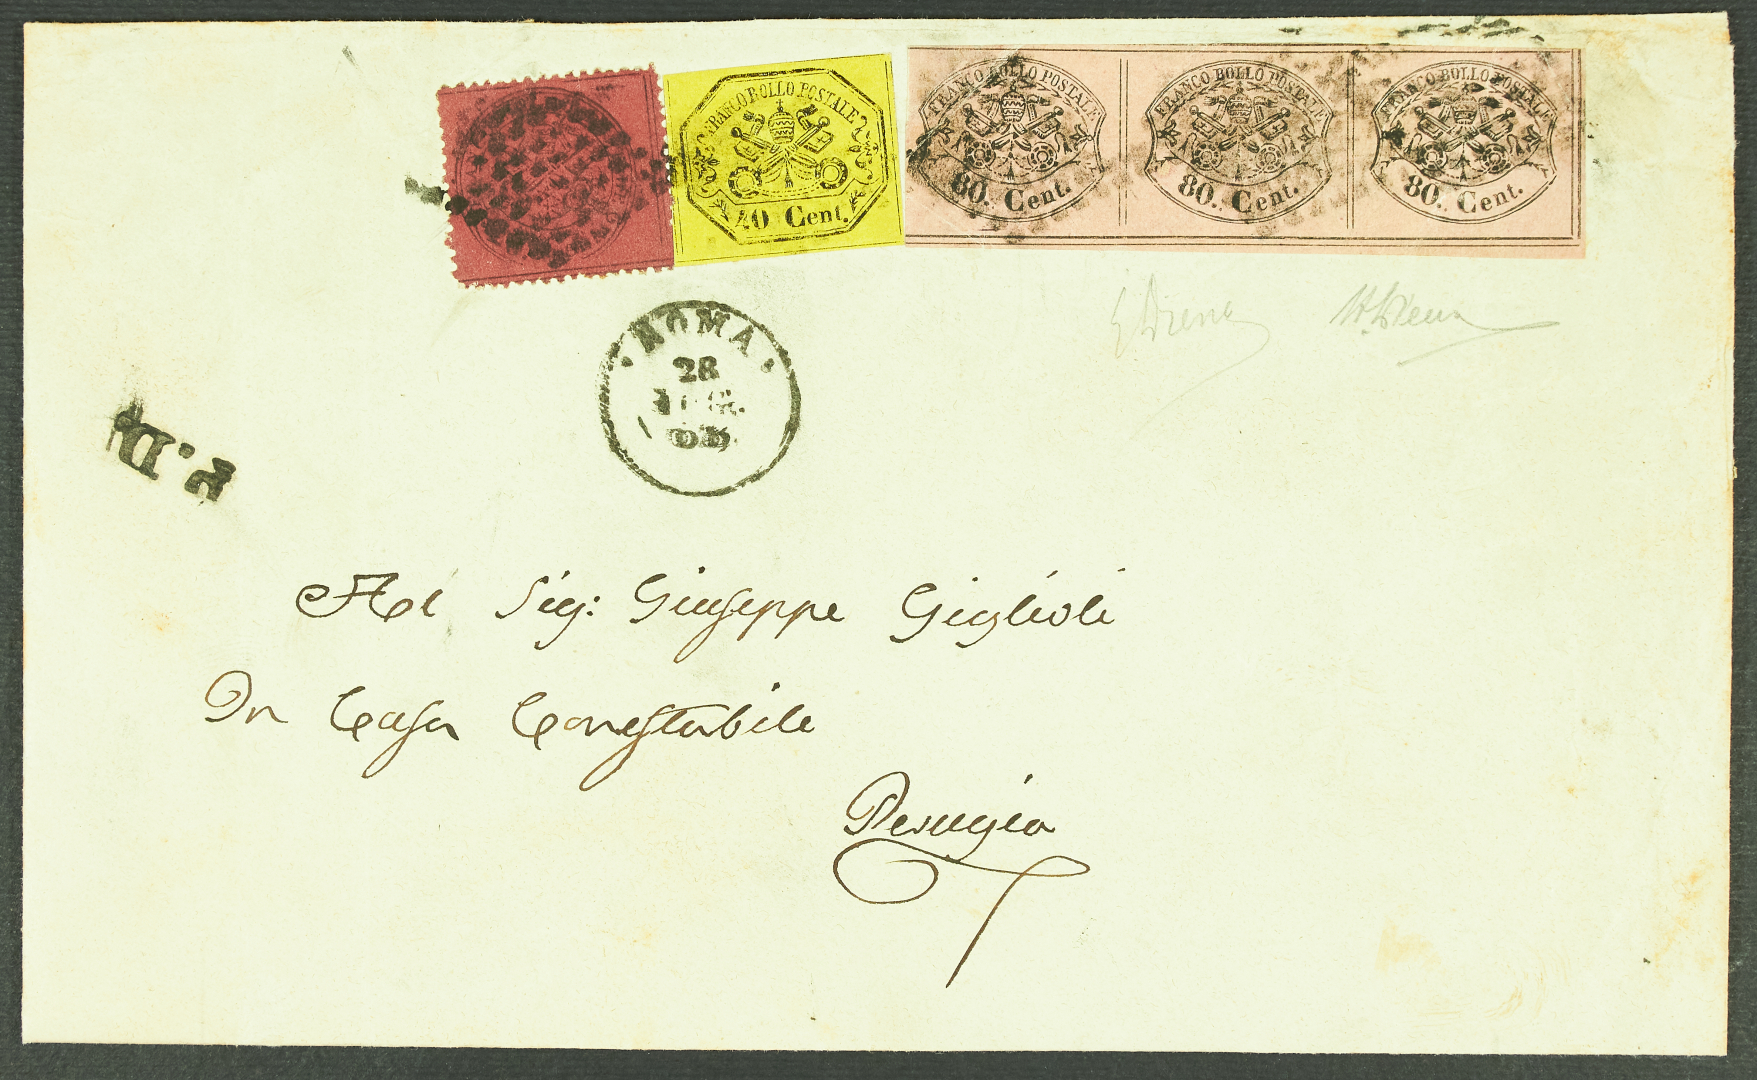 FRANCO BOLLO POSTALE
40 Cent.
FRANCO BOLLO POSTALE
80. Cent.
FRANCO BOLLO POSTALE
80. Cent.
FRANCO BOLLO POSTALE
80. Cent.
ROMA
28
P.D.
Al Sig: Giuseppe Giglioli
In Casa Conestabile
Perugia